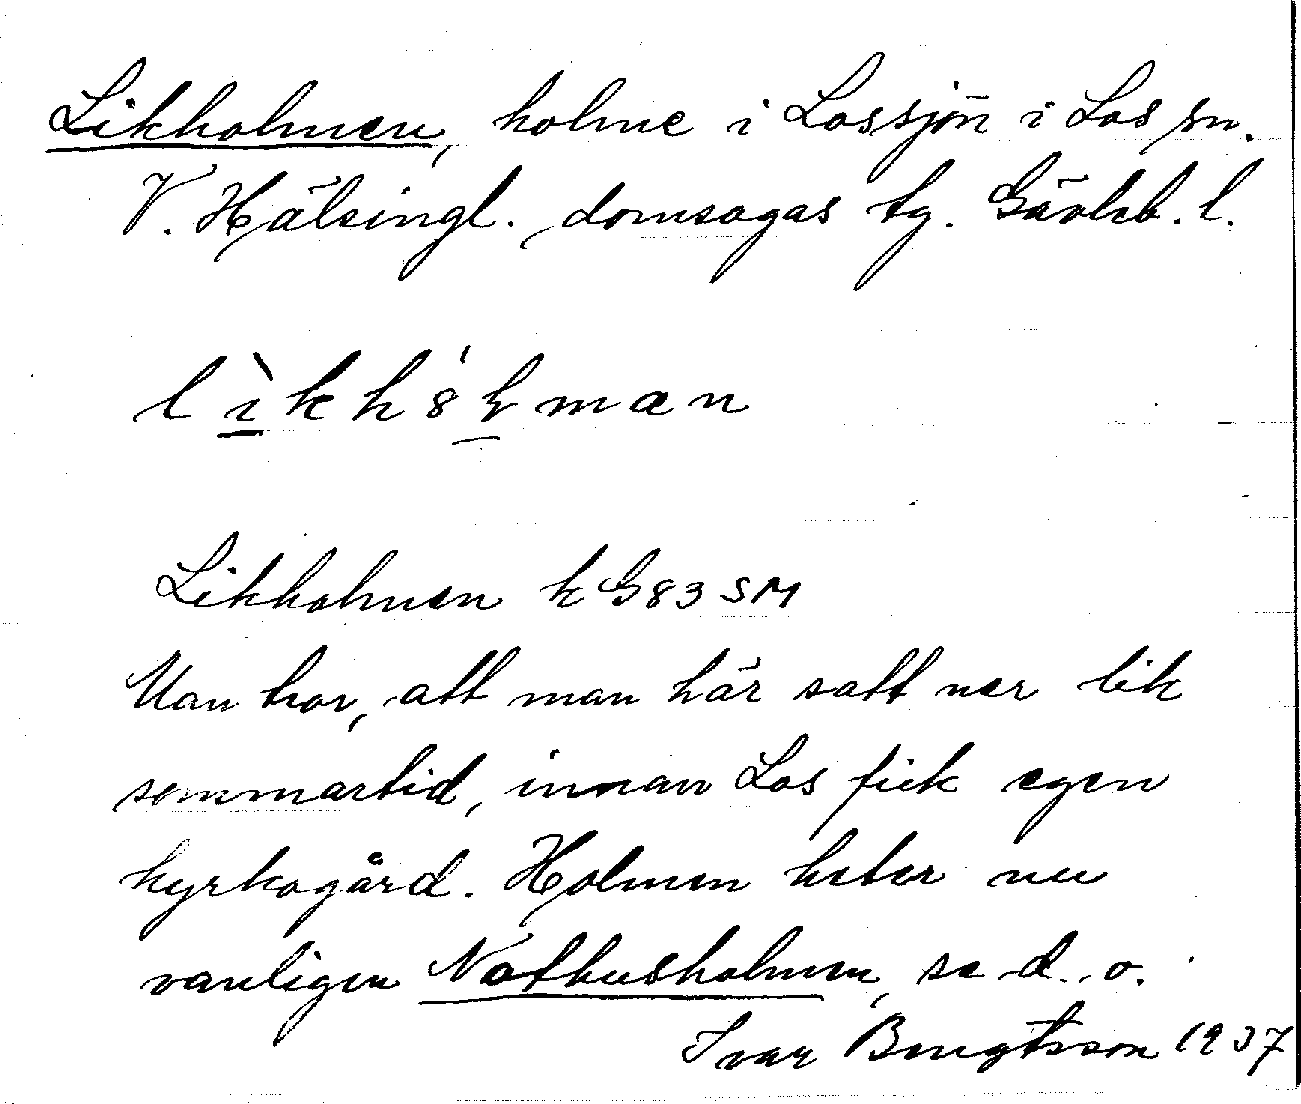 Likholmen, holme i Lossjön i Los sn.
V. Hälsingl. domsagas tg. Gävleb. l.
Likholmen k G83SM
Man tror, att man här satt ner lik
sommartid, innan Los fick egen
kyrkogård. Holmen heter nu
vanligen Nothusholmen, se d. o.
Ivar Bengtsson 1937